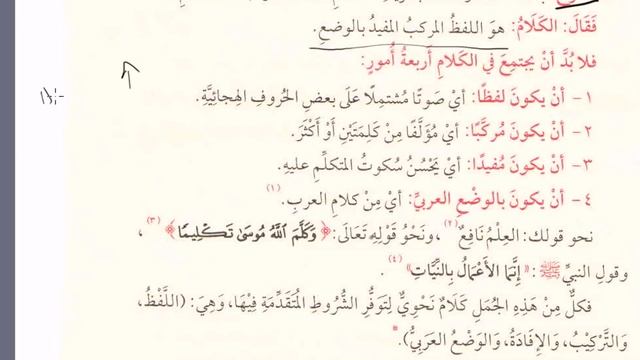 فَقَالَ: الكَلَامُ: هوَ اللفظُ المركبُ المفيدُ بالوضعِ.
فلا بُدَّ أنْ يجتمِعَ في الكلامِ أربعةُ أمورٍ:
١- أنْ يكونَ لفظًا: أيْ صَوتًا مُشتمِلًا عَلَى بعضِ الحُروفِ الهِجائيَّةِ.
٢- أنْ يكونَ مُركَّبًا: أيْ مُؤَلَّفًا مِنْ كلِمَتَيْنِ أَوْ أكْثَرَ.
٣- أنْ يكونَ مُفيدًا: أيْ يَحْسُنُ سُكوتُ المتكلِّمِ عليهِ.
٤- أنْ يكونَ بالوضْعِ العربيِّ: أيْ مِنْ كلامِ العربِ. (١)
نحو قولك: العِلْمُ نَافِعٌ (٢)، ونَحْوُ قَوْلِهِ تَعَالَى: ﴿وَكَلَّمَ اللَّهُ مُوسَىٰ تَكْلِيمًا﴾ (٣)،
وقولِ النبيِّ ﷺ: "إِنَّمَا الأَعْمَالُ بِالنِّيَّاتِ" (٤).
فكلٌّ مِنْ هَذِهِ الجُمَلِ كَلَامٌ نَحْوِيٌّ لِتَوفُّرِ الشُّرُوطِ المُتَقدِّمَةِ فِيْهَا، وَهِيَ: (اللَّفْظُ،
وَالتَّرْكِيْبُ، وَالإِفَادَةُ، وَالوَضْعُ العَرَبِيُّ).